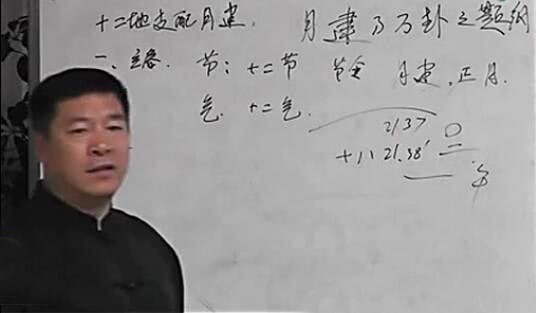 十二地支配月建. 月建乃万卦之题纲
一、 节: 十二节 节令 月建. 正月.
气. 十二气.
2137
十八 21.38'